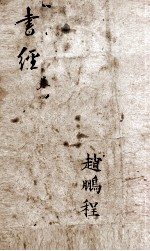 書經
趙鵬程